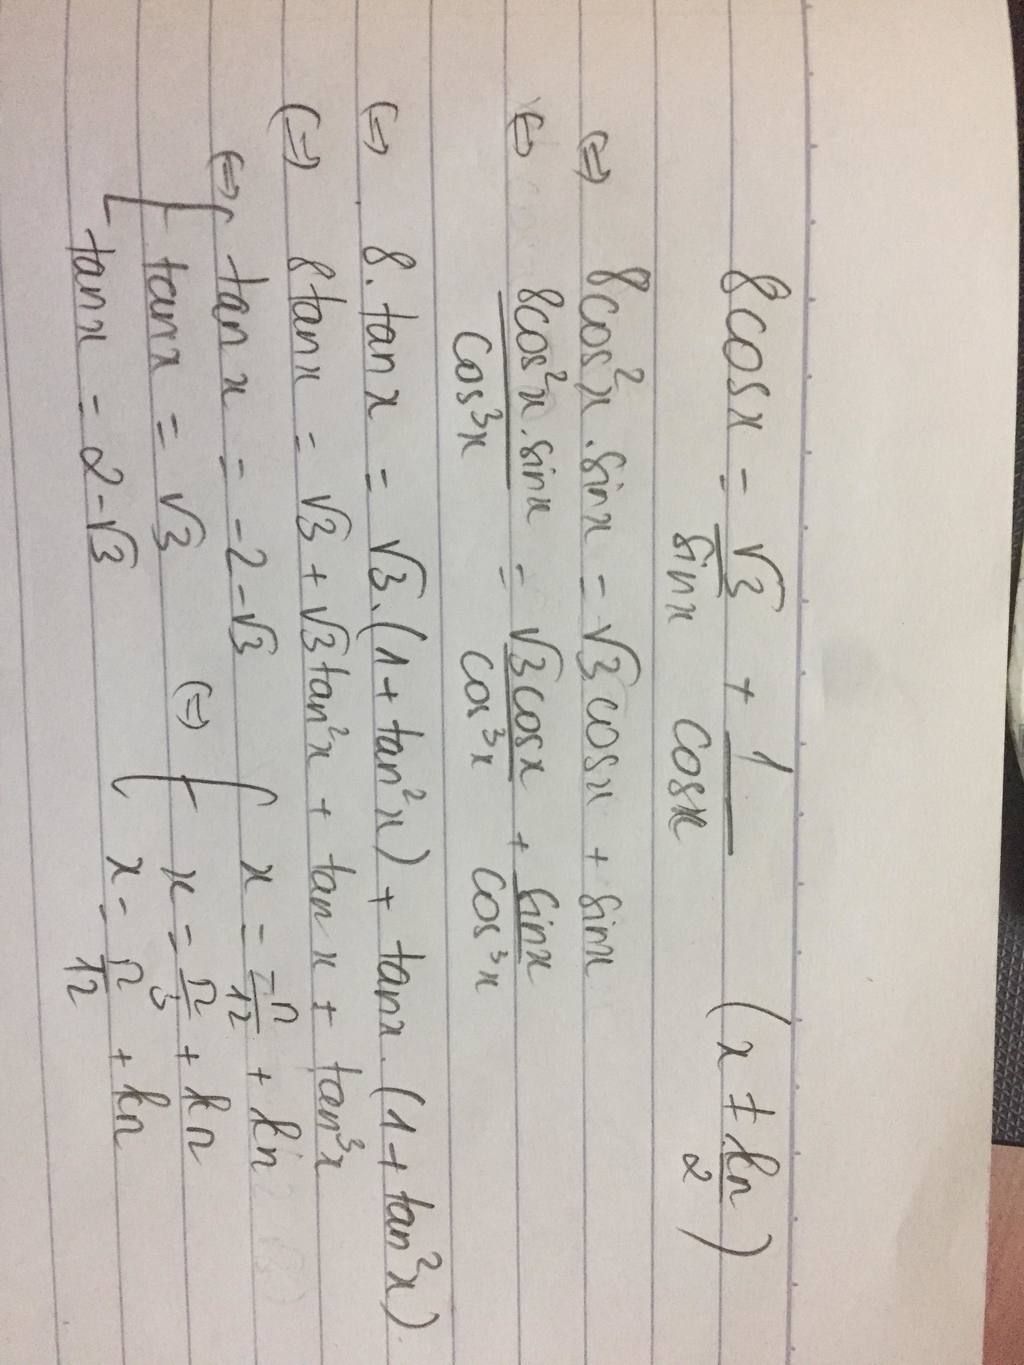 8cosx = √3/sinx + 1/cosx (x ≠ kπ/2)
(=) 8cos²x.sinx = √3cosx + sinx
(=) 8cos²x.sinx/cos³x = √3cosx/cos³x + sinx/cos³x
(=) 8.tanx = √3.(1+tan²x) + tanx.(1+tan²x).
(=) 8tanx = √3 + √3tan²x + tanx + tan³x
(=) [ tanx = -2-√3 (=) [ x = -π/12 + kπ
tanx = √3 x = π/3 + kπ
tanx = 2-√3 x = π/12 + kπ